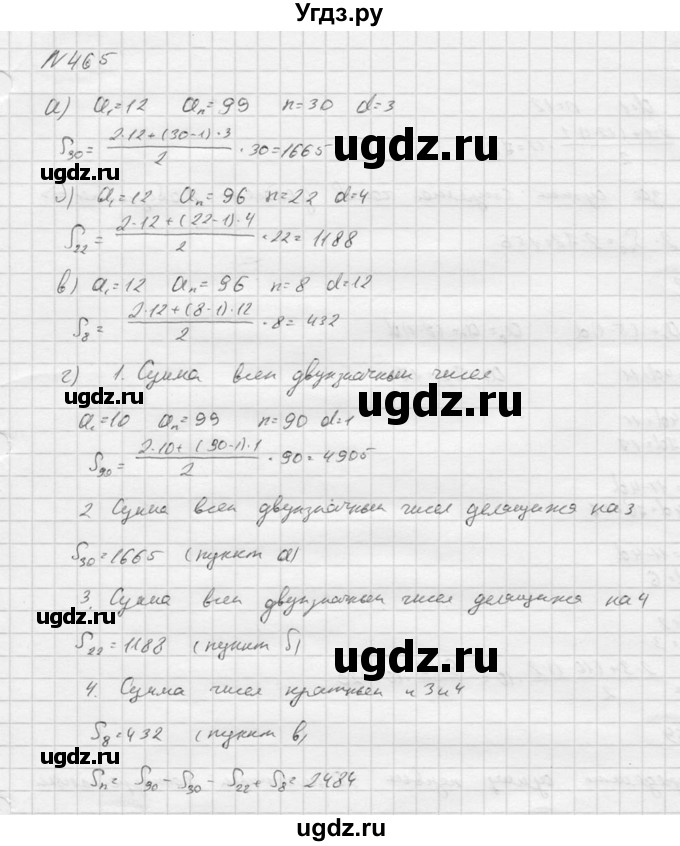 Угдз.ру
N 465
а) a₁=12 aₙ=99 n=30 d=3
S₃₀= (2·12+(30-1)·3)/2 · 30=1665
ugdz.ru
ugdz.ru
б) a₁=12 aₙ=96 n=22 d=4
S₂₂= (2·12+(22-1)·4)/2 ·22= 1188
ugdz.ru
ugdz.ru
в) a₁=12 aₙ=96 n=8 d=12
S₈= (2·12+(8-1)·12)/2 · 8= 432
г) 1. Сумма всех двузначных чисел
ugdz.ru
ugdz.ru
a₁=10 aₙ=99 n=90 d=1
S₉₀= (2·10+(90-1)·1)/2 · 90= 4905
ugdz.ru
2 Сумма всех двузначных чисел делящихся на 3
S₃₀=1665 (пункт а)
3. Сумма всех двузначных чисел делящихся на 4
ugdz.ru
S₂₂=1188 (пункт б)
ugdz.ru
4. Сумма чисел кратных и 3 и 4
S₈=432 (пункт в)
ugdz.ru
ugdz.ru
Sₙ= S₉₀-S₃₀-S₂₂+S₈= 2484
ugdz.ru